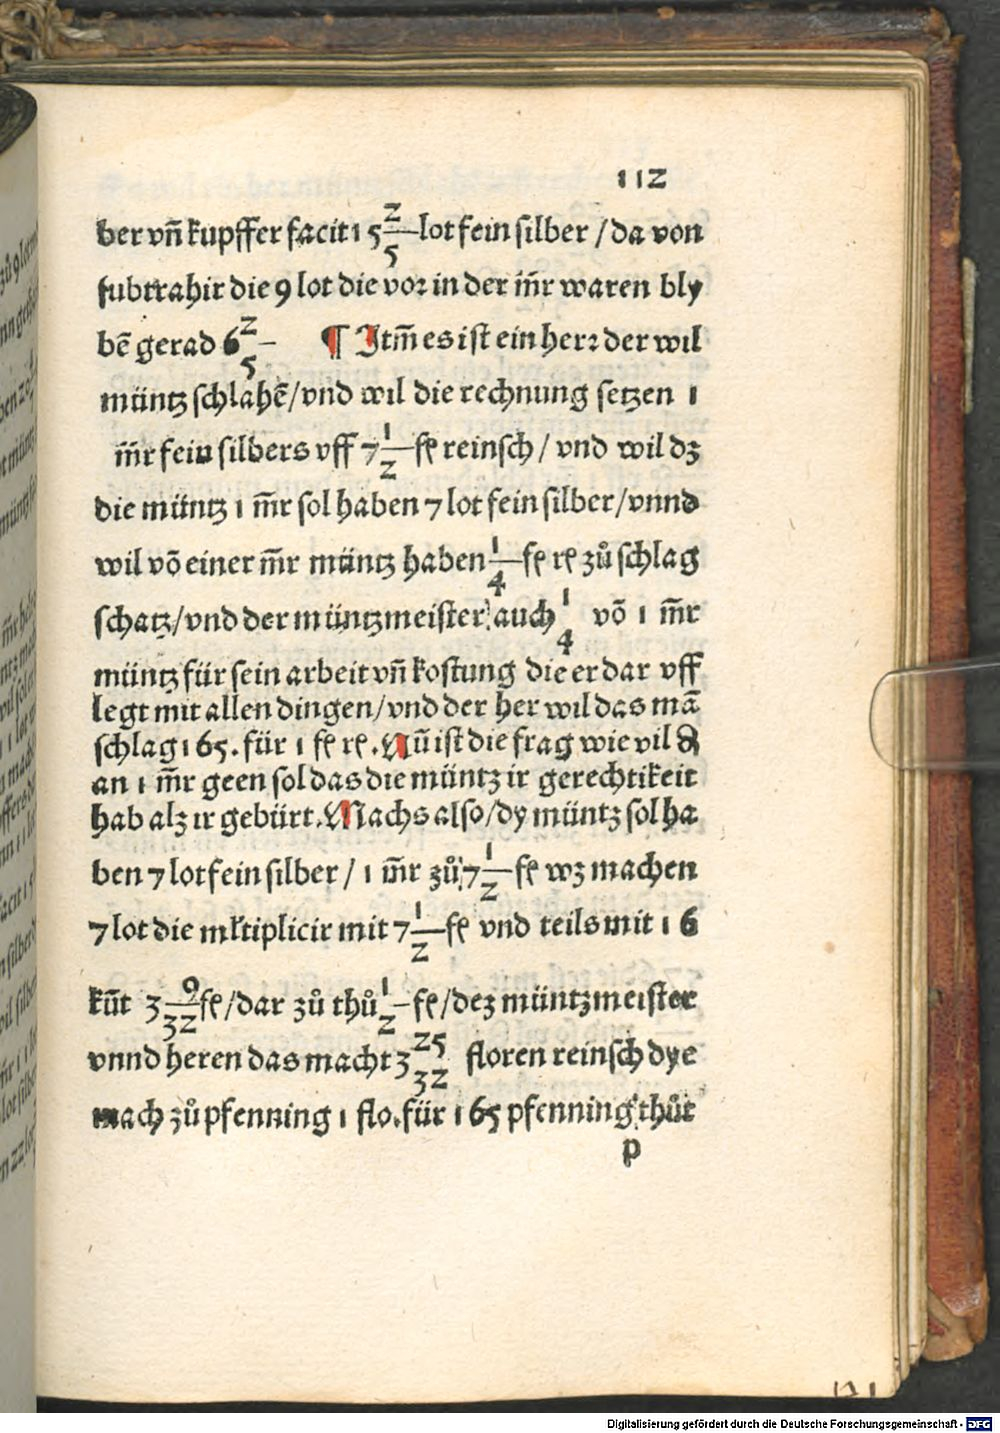 112
ber vn̄ kupffer facit 15 2/5 lot fein silber / da von
subtrahir die 9 lot die vor in der m̄r waren bly
bē gerad 6 2/5 ¶ Itm̄ es ist ein herr der wil
müntz schlahē / vnd wil die rechnung setzen 1
m̄r fein silbers vff 7 1/2 fl reinsch / vnd wil dz
die müntz 1 m̄r sol haben 7 lot fein silber / vnnd
wil vō einer m̄r müntz haben 1/4 fl rl zů schlag
schatz / vnd der müntzmeister auch 1/4 vō 1 m̄r
müntz für sein arbeit vn̄ kostung die er dar vff
legt mit allen dingen / vnd der her wil das mā
schlag 165. für 1 fl rl. Nū ist die frag wie vil ₰
an 1 m̄r geen sol das die müntz ir gerechtikeit
hab alz ir gebürt. Machs also / dy müntz sol ha
ben 7 lot fein silber / 1 m̄r zů 7 1/2 fl wz machen
7 lot die mltiplicir mit 7 1/2 fl vnd teils mit 16
kūt 3 9/32 fl / dar zů thů 1/2 fl / dez müntzmeister
vnnd heren das macht 3 25/32 floren reinsch dye
mach zů pfenning 1 flo. für 165 pfenning thůt
p
Digitalisierung gefördert durch die Deutsche Forschungsgemeinschaft - DFG